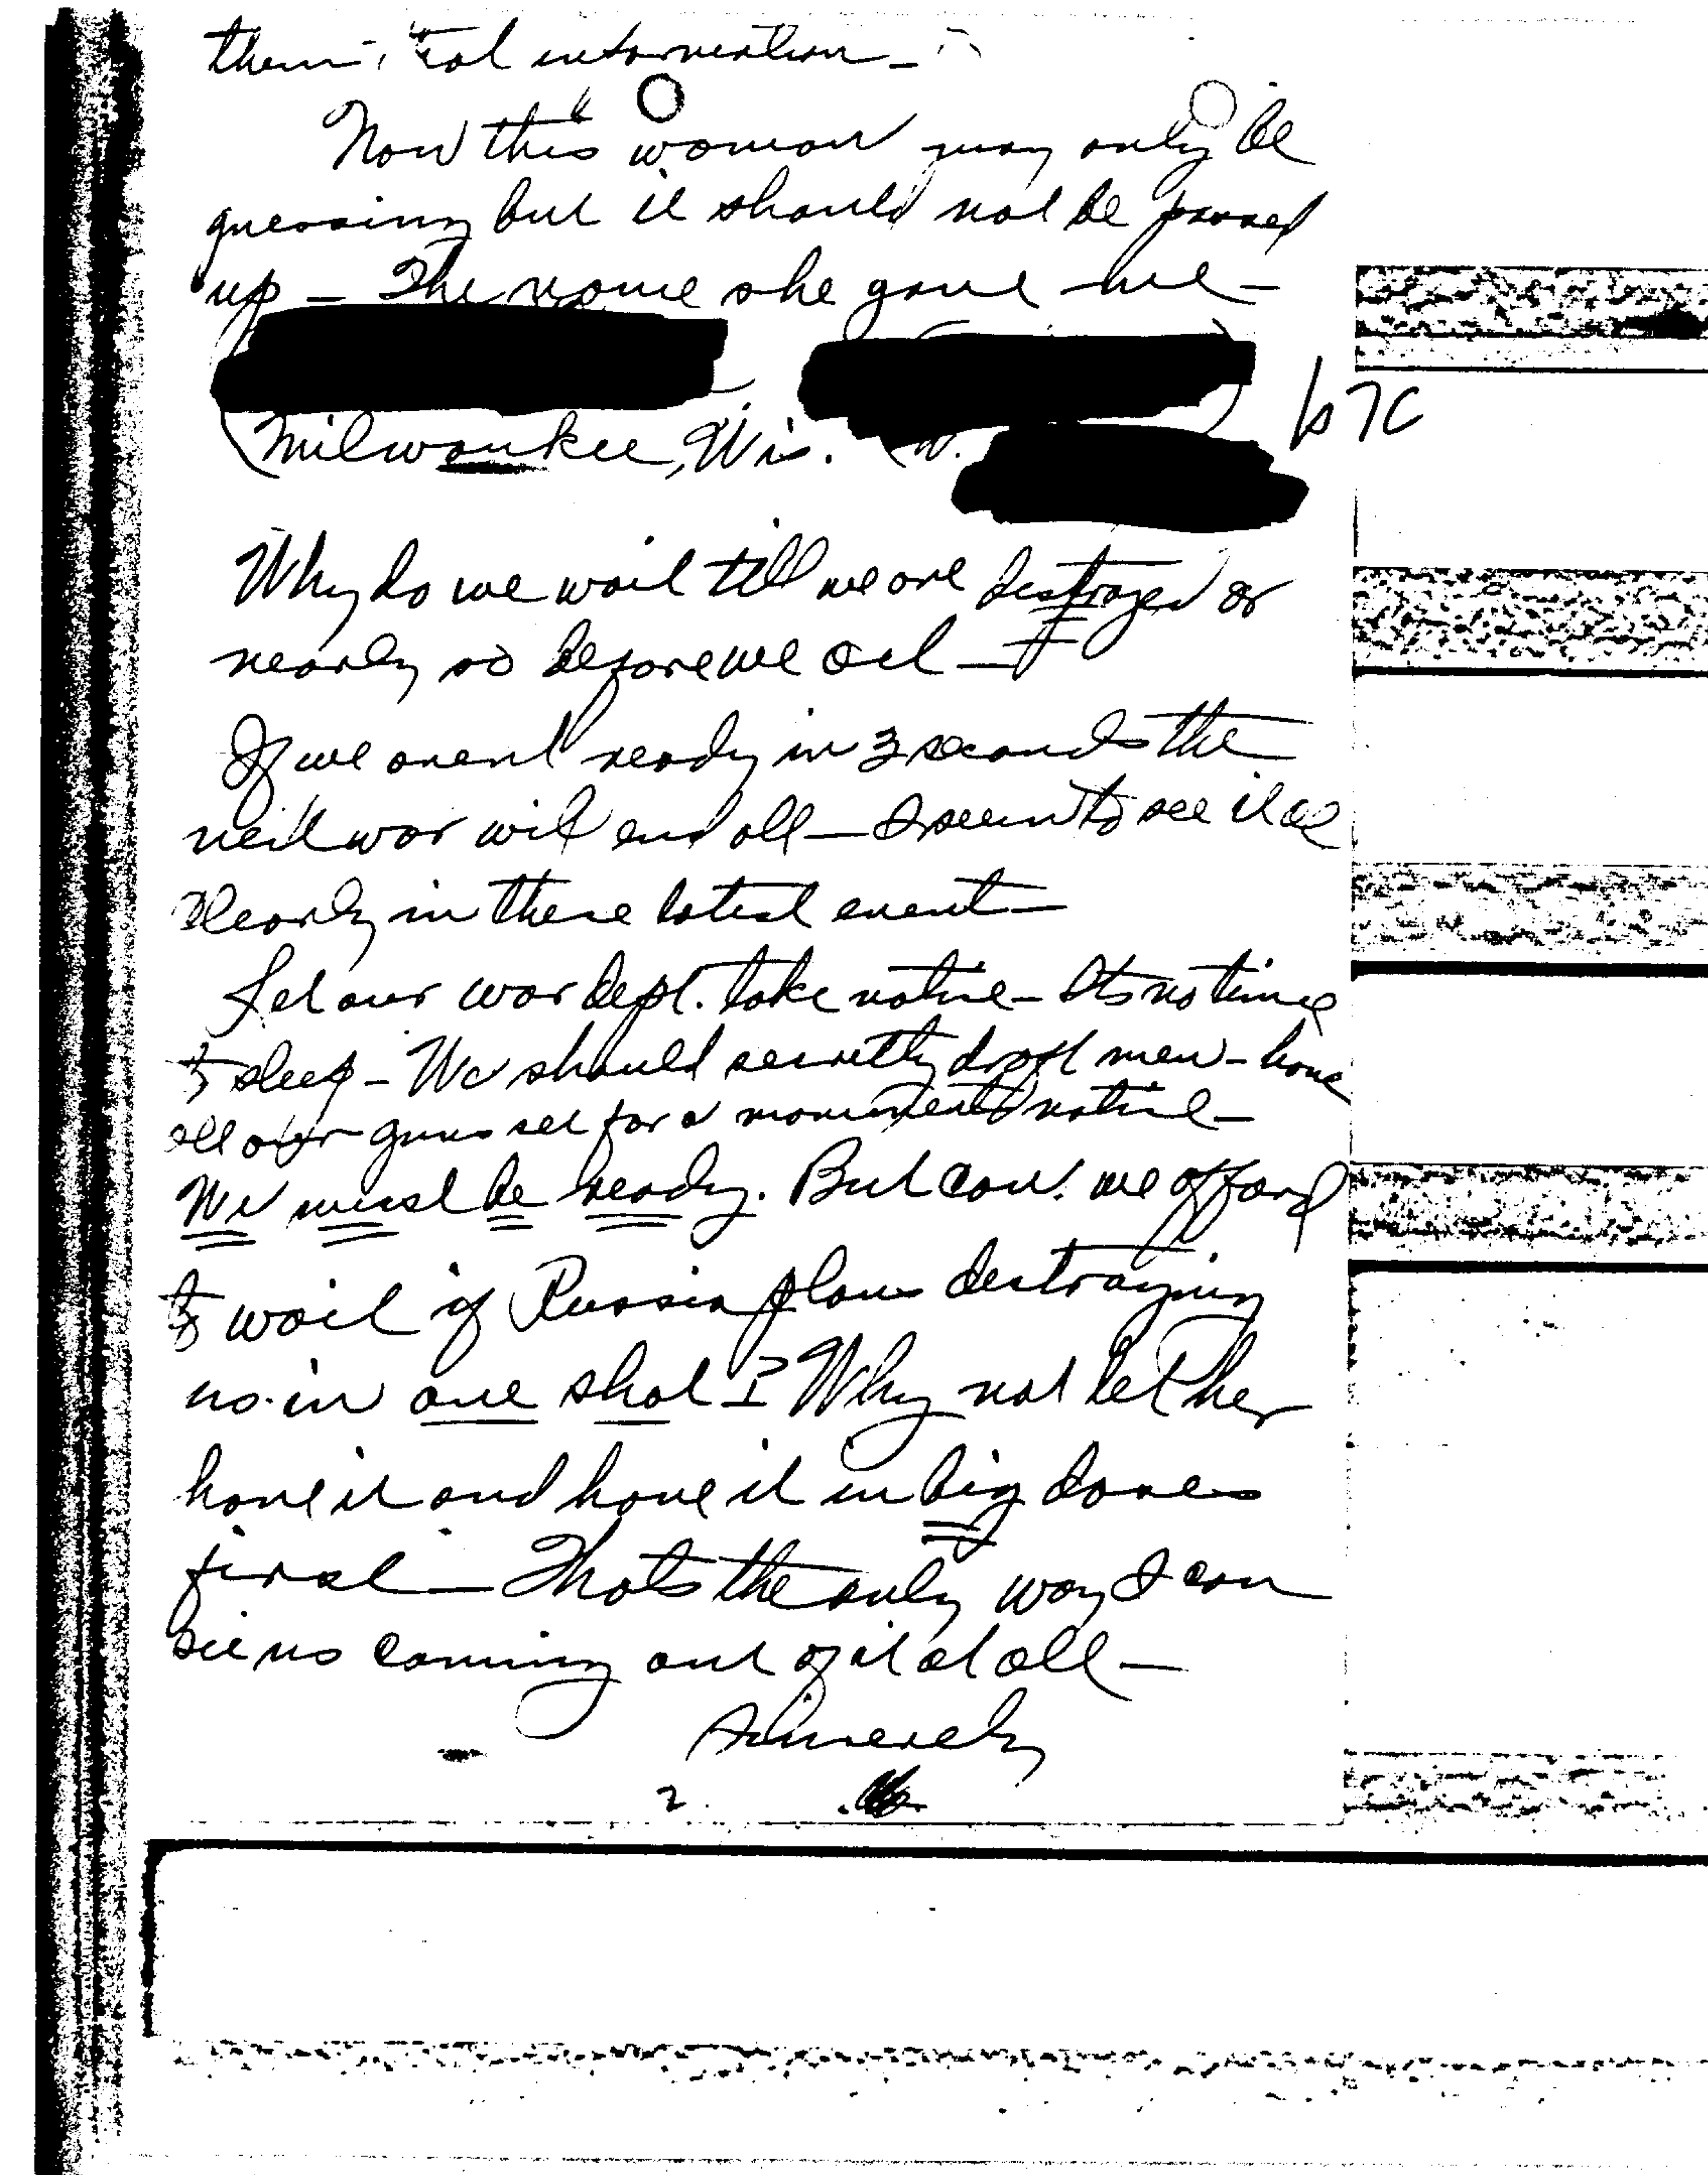 them, information —
Now this woman may only be
guessing but it should not be passed
up — The name she gave me —
b7C
Milwaukee, Wis.
Why do we wait till we are destroyed or
nearly so before we act —
If we arent ready in 3 seconds the
next war will end all — I seem to see it all
clearly in these latest event —
Let our war dept. take notice — Its no time
to sleep — We should secretly draft men — have
all our guns set for a moments notice —
We must be ready. But can we afford
to wait if Russia plans destroying
us in one shot? Why not let her
have it and have it in big doses
first — Thats the only way I can
see us coming out of it at all —
Sincerely
2.